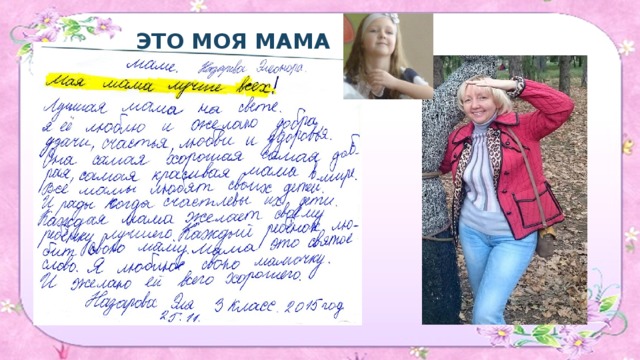 ЭТО МОЯ МАМА
Маме. Назарова Элеонора.
Моя мама лучше всех!
Лучшая мама на свете.
Я её люблю и желаю добра,
удачи, счастья, любви и здоровья.
Она самая хорошая самая доб-
рая, самая красивая мама в мире.
Все мамы любят своих детей.
И рады когда счастливы их дети.
Каждая мама желает своему
ребёнку лучшего. Каждый ребёнок лю-
бит свою маму. Мама это святое
слово. Я люблю свою мамочку.
И желаю ей всего хорошего.
Назарова Эля 3 класс. 2015 год
25.11.